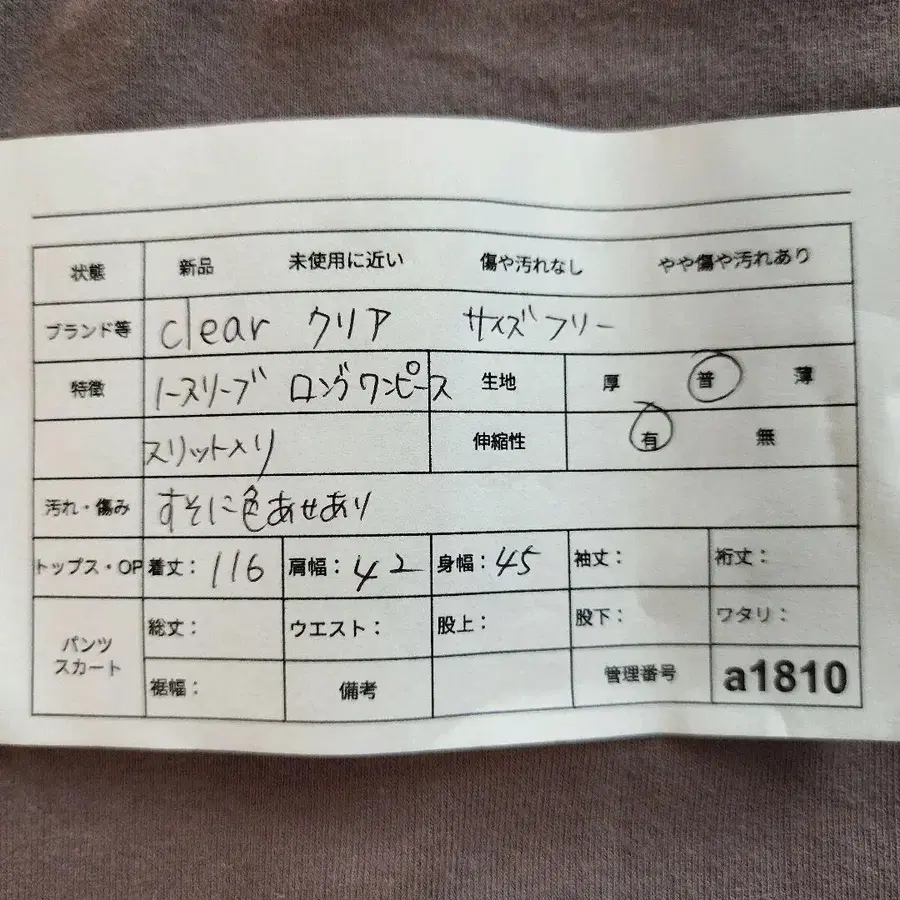 状態 新品 未使用に近い 傷や汚れなし やや傷や汚れあり
ブランド等 clear クリア サイズフリー
特徴 ノースリーブ ロングワンピース 生地 厚 普 薄
スリットメリ 伸縮性 有 無
汚れ・傷み すそに色あせあり
トップス・OP 着丈：116 肩幅：42 身幅：45 袖丈： 裄丈：
パンツ スカート 総丈： ウエスト： 股上： 股下： ワタリ：
裾幅： 備考 管理番号 a1810